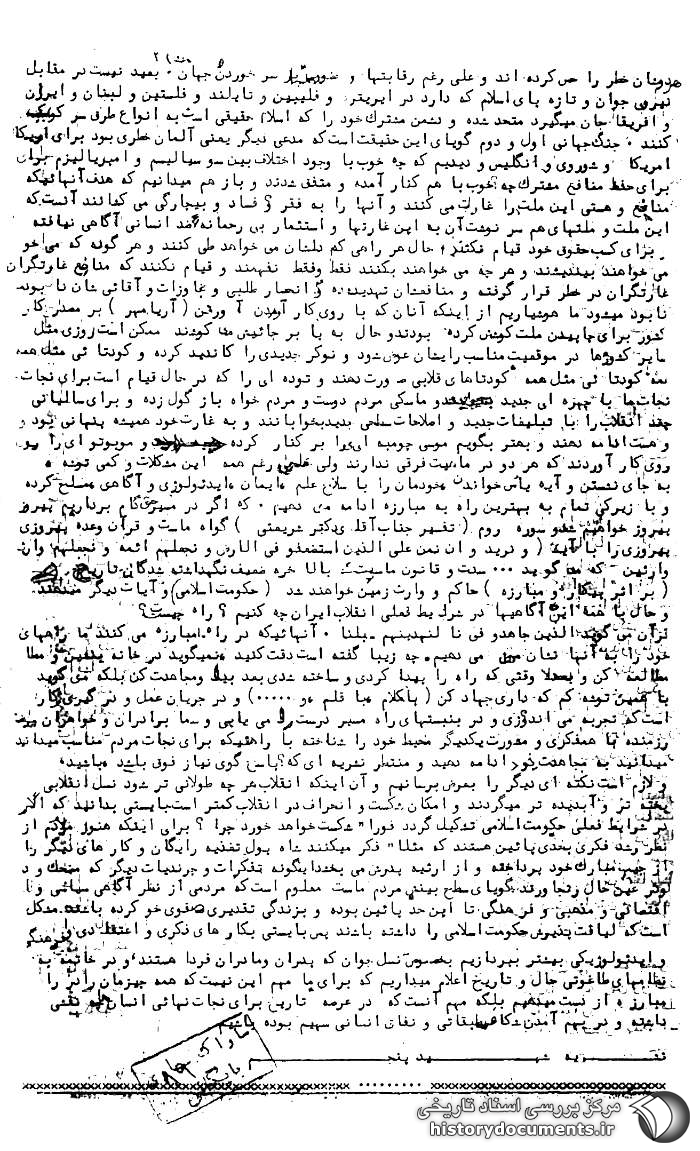 صفحه ۲
دونان خطر را حس کرده اند و علی رغم رقابتها و سر خوردن جهان بعید نیست در مقابل
نیروی جوان و تازه پای اسلام که دارد در اریتره و فلیپین و تایلند و فلستین و لبنان و ایران
و افریقا جان میگیرد متحد شده و دشمن مشترک خود را که اسلام حقیقی است به انواع طرق سر کوب
کنند . جنگ جهانی اول و دوم گویای این حقیقت است که مدعی دیگر یعنی آلمان خطری بود برای امریکا
امریکا و شوروی و انگلیس و دیدیم که چه خوب با وجود اختلاف بین سوسیالیسم و امپریالیزم برای
برای حفظ منافع مشترک چه خوب با هم کنار آمده و متفق شدند و باز هم میدانیم که هدف آنهائیکه
منافع و هستی این ملت را غارت می کنند و آنها را به فقر و فساد و بیچارگی می کشانند آنست که
این ملت و ملتهای هم سر نوشت آن به این غارتها و استثمار بی رحمانه ضد انسانی آگاهی نیافته
و برای کسب حقوق خود قیام نکنند حال هر راهی کم دلشان می خواهد طی کنند و هر گونه که می خو
می خواهند بیندیشند و هر چه می خواهند بکنند فقط وفقط نفهمند و قیام نکنند که منافع غارتگران
غارتگران در خطر قرار گرفته و منافعشان تهدید شده و انحصار طلبی و تجاوزات و آقائی شان نابود
نابود میشود ما هوشیاریم از اینکه آنان که با روی کار آوردن آ ورختن (آریامهر) بر مصدر کار
کشور برای چاپیدن ملت کوشش کرده بودند و حال به پا بر جائیش میکوشند ممکن است روزی مثل
سایر کشورها در موقعیت مناسب رایشان عوض شود و نوکر جدیدی را کاندید کرده و کودتا ئی مثل همه
همه کودتا ئی مثل همه کودتاهای قلابی صورت دهند و توده ای را که در حال قیام است برای نجات
نجات ما با چهره ای جدید و ماسکی مردم دوست و مردم خواه باز گول زده و برای سالیانی
چند انقلاب را با تبلیغات جدید و اصلاحات سطحی جدید بخوابانند و به غارت خود همیشه پنهانی بود و
و هست ادامه دهند و بهتر بگویم موسی چومبه ای را بر کنار کرده و موبوتو ای را روی
روی کار آوردند که هر دو در ماهیت فرقی ندارند ولی علی رغم همه این مشکلات و کمی توشه ه
به جای نشستن و آیه یاس خواندن خودمان را با سلاح علم ایمان ایدئولوژی و آگاهی مسلح کرده
و با زیرکی تمام به بهترین راه به مبارزه ادامه می دهیم . که اگر در مسیر حق گام برداریم پیروز
پیروز خواهیم شد و سوره روم (تفسیر جناب آقای دکتر شریعتی) گواه ماست و قرآن وعده پیروزی
پیروزی را با آیه (و نرید و ان نمن علی الذین استضعفو فی الارض و نجعلهم ائمه و نجعلهم وارث
وارثین - که می گوید ... سنت و قانون ماست که بالا خره ضعیف نگهداشته شدگان تاریخ
(بر اثر پیکار و مبارزه) حاکم و وارث زمین خواهند شد (حکومت اسلامی) و آیات دیگر میدهد
و حال با همه این آگاهیها در شرایط فعلی انقلاب ایران چه کنیم ؟ راه چیست ؟
قرآن می گوید الذین جاهدو فی نا لنهدینهم سبلنا . آنهائیکه در راه ما مبارزه می کنند ما راههای
خود را به آنها نشان می دهیم . چه زیبا گفته است دقت کنید نمیگوید در خانه بنشین و مطا
مطالعه کن و بعدا وقتی که راه را پیدا کردی و ساخته شدی بعد بیا ومجاهدت کن بلکه می گوید
با همین توشه کم که داری جهاد کن (با کلام با قلم و .....) و در جریان عمل و در گیری کار
است که تجربه می اندوزی و در بنبستهای راه مسیر درست را می یابی و شما برادران و خواهران
رزمنده با همفکری و مشورت یکدیگر محیط خود را شناخته با راههائیکه برای نجات مردم مناسب میدانید
میدانید به مجاهدت خود ادامه دهید و منتظر نشریه ای که پاسخ گوی نیاز فوق باشد باشید
و لازم است نکته ای دیگر را بعرض برسانیم و آن اینکه انقلاب هر چه طولانی تر شود نسل انقلابی
پخته تر و آبدیده تر میگردند و امکان شکست و انحراف در انقلاب کمتر است بایستی بدانید که اگر
در شرایط فعلی حکومت اسلامی تشکیل گردد فورا" شکست خواهد خورد چرا ؟ برای اینکه هنوز مردم از
نظر رشد فکری بحدی پائین هستند که مثلا" فکر میکنند شاه پول تغذیه رایگان و کار های دیگر را
از جیب مبارک خود پرداخته و از ارثیه پدرش می بخشد اینگونه تفکرات و چرندیات دیگر که مضحک و د
ودر عین حال رنجاورند گویای سطح بینش مردم ماست معلوم است که مردمی از نظر آگاهی سیاسی و
اجتماعی و مذهبی و فرهنگی تا این حد پائین بوده و بزندگی تقدیری صفوی خو کرده باشند مشکل
است که لیاقت پذیرش حکومت اسلامی را داشته باشند پس بایستی بکار های فکری و اعتقادی و فرهنگی
و ایدئولوژیکی بیشتر بپردازیم بخصوص نسل جوان که پدران ومادران فردا هستند و در خاتمه به
نظامهای طاغوتی حال و تاریخ اعلام میداریم که برای ما مهم این نیست که همه چیزمان را در را
مبارزه از دست میدهیم بلکه مهم آنست که در عرصه تاریخ برای نجات نهائی انسان نقشی
داشته و در بهم آمدن شکاف طبقاتی و نفاق انسانی سهیم بوده باشیم
نشریه شهید پنجم
مرکز بررسی اسناد تاریخی
historydocuments.ir